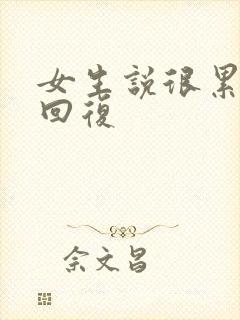 女生說很累
回復
余文昌